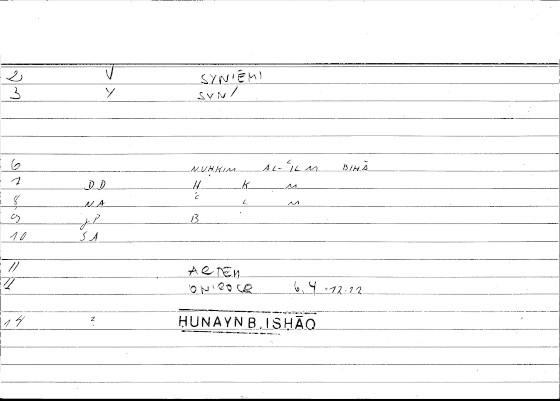 2 V SYNIĒMI
3 Y SYN/
6 NUHKIM AL-ʿILM BIHĀ
7 DD H K M
8 NA ʿ L M
9 JP B
10 SA
11 ARTEM
12 6,4 -12.22
14 ? ḤUNAYN B. ISḤĀQ